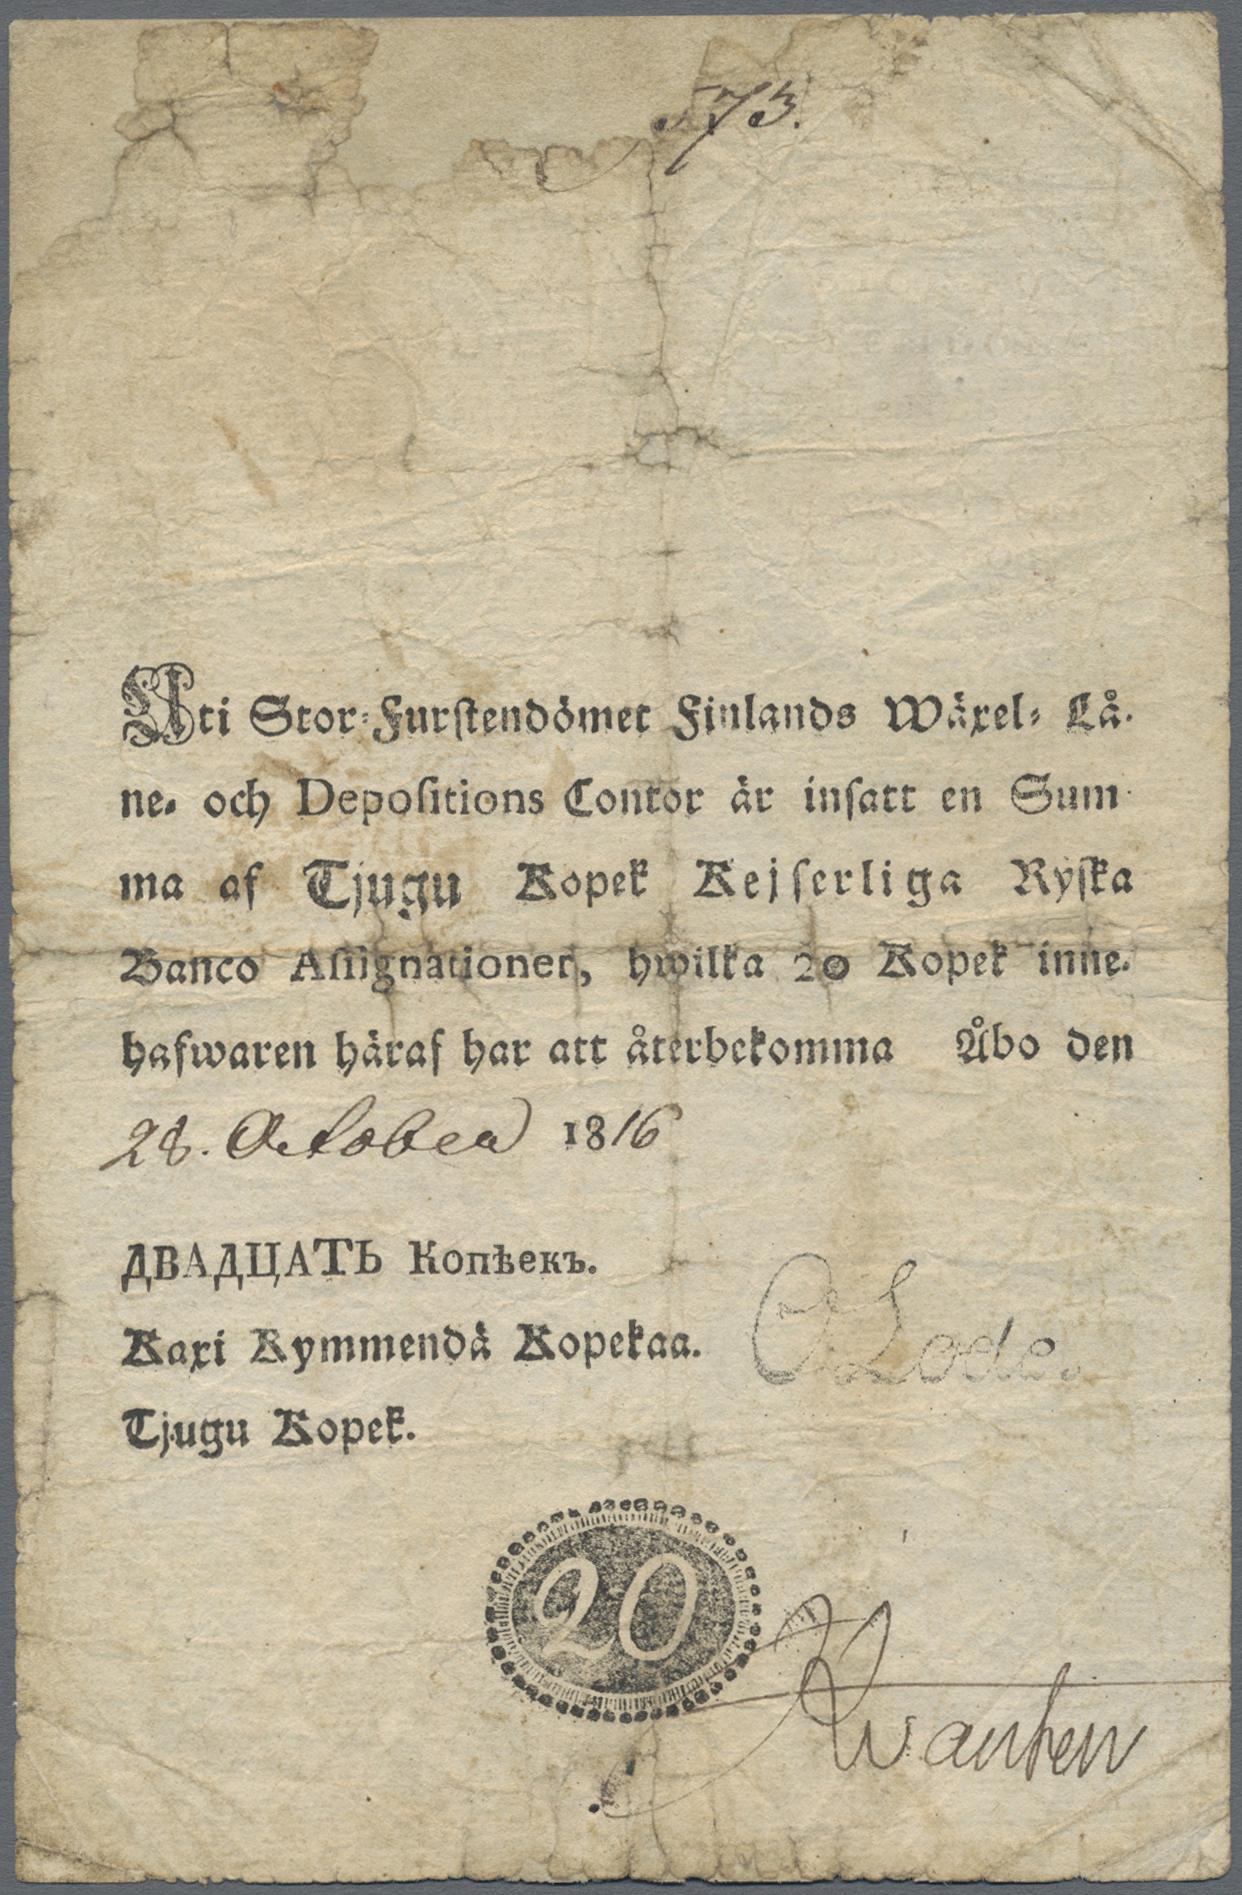 573.
Uti Stor-Furstendömet Finlands Wäxel- Lå-
ne- och Depositions Contor är insatt en Sum-
ma af Tjugu Kopek Kejserliga Ryska
Banco Assignationer, hwilka 20 Kopek inne-
hafwaren häraf har att återbekomma Åbo den
28. October 1816
ДВАДЦАТЬ Копѣекъ.
Kaxi Kymmendä Kopekaa.
O Lode.
Tjugu Kopek.
20
Kvanten